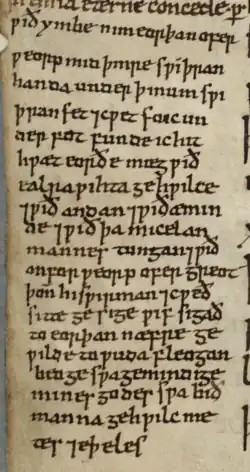 ƿið ymbe nim eorþan ofer
ƿeorp mid þinre sƿiþran
handa under þinum sƿi
þran fet ⁊ cƿet fo ic un
der fot funde ic hit
hƿæt eorðe mæg ƿið
ealra ƿihta gehƿilce
⁊ ƿið andan ⁊ ƿið æmin
de ⁊ ƿið þa micelan
mannes tungan ⁊ ƿið
on forƿeorp ofer greot
þoñ hi sƿirman ⁊ cƿeð
sitte ge sigeƿif sigað
to eorþan næfre ge
ƿilde to ƿuda fleogan
beo ge sƿa gemindige
mines godes sƿa bið
manna gehƿilc me
tes ⁊ eþeles